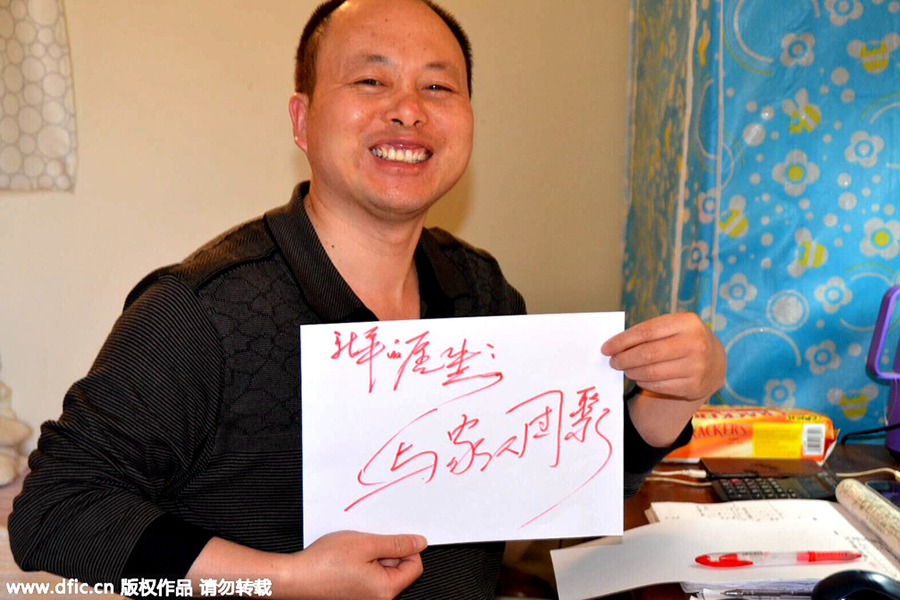 新年愿望：
与家人团聚
RACKERS
www.dfic.cn 版权作品 请勿转载